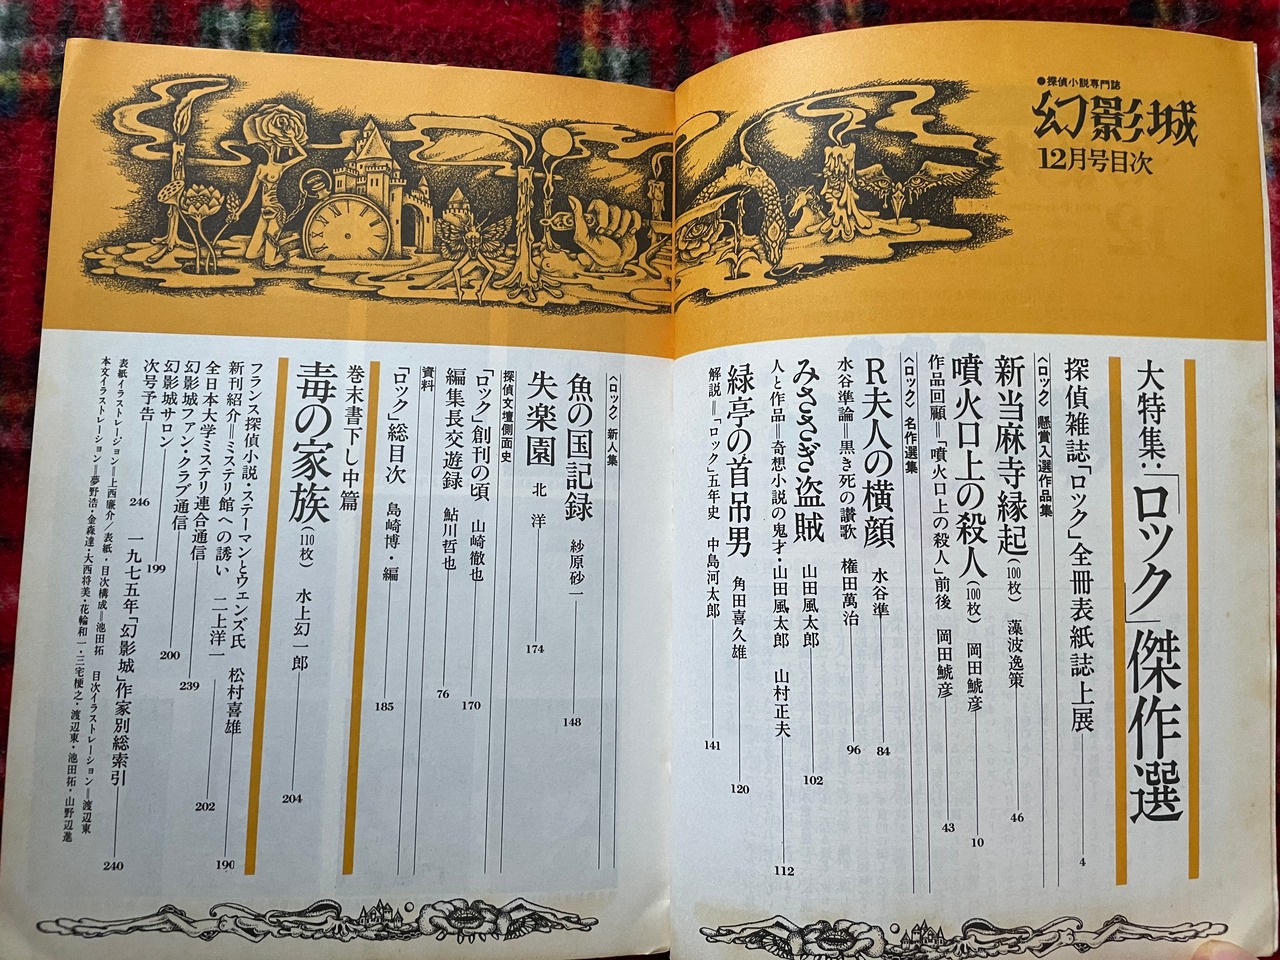 ●探偵小説専門誌
幻影城
12月号目次
大特集：「ロック」傑作選
探偵雑誌「ロック」全冊表紙誌上展 4
〈ロック〉懸賞入選作品集
新当麻寺縁起(100枚) 藻波逸策 46
噴火口上の殺人(100枚) 岡田鯱彦 10
作品回顧＝「噴火口上の殺人」前後 岡田鯱彦 43
〈ロック〉名作選集
R夫人の横顔 水谷準 84
水谷準論＝黒き死の讃歌 権田萬治 96
みささぎ盗賊 山田風太郎 102
人と作品＝奇想小説の鬼才・山田風太郎 山村正夫 112
緑亭の首吊男 角田喜久雄 120
解説＝「ロック」五年史 中島河太郎 141
〈ロック〉新人集
魚の国記録 紗原砂一 148
失楽園 北洋 174
探偵文壇側面史
「ロック」創刊の頃 山崎徹也 170
編集長交遊録 鮎川哲也 76
資料
「ロック」総目次 島崎博・編 185
巻末書下し中篇
毒の家族(110枚) 水上幻一郎 204
フランス探偵小説・ステーマンとウェンズ氏 松村喜雄 190
新刊紹介＝ミステリ館への誘い 二上洋一 202
全日本大学ミステリ連合通信 239
幻影城ファン・クラブ通信 200
幻影城サロン 199
次号予告 246
一九七五年「幻影城」作家別総索引 240
表紙イラストレーション＝上西廉介／表紙・目次構成＝池田拓 目次イラストレーション＝渡辺東
本文イラストレーション＝夢野浩・金森達・大西将美・花輪和一・三宅梗之・渡辺東・池田拓・山野辺進